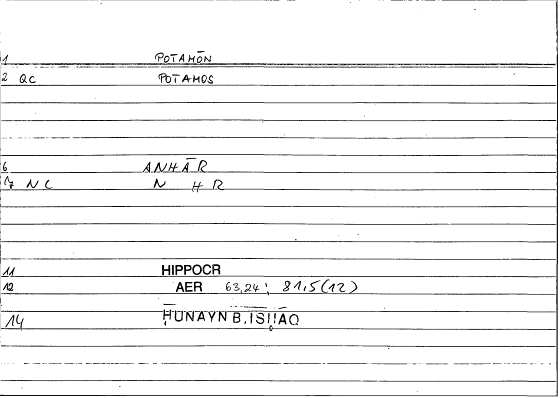 1 POTAMŌN
2 QC POTAMOS
6 ANHĀR
7 NC N H R
11 HIPPOCR
12 AER 63,24; 81,5(12)
14 ḤUNAYN B. ISḤĀQ